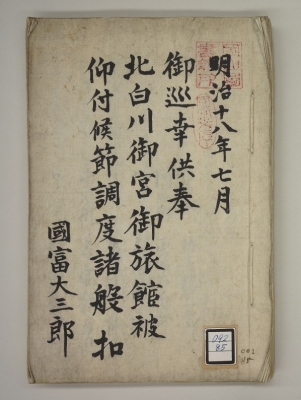 明治十八年七月
御巡幸供奉
北白川御宮御旅館被
仰付候節調度諸般扣
國富大三郎
092
85
092
85